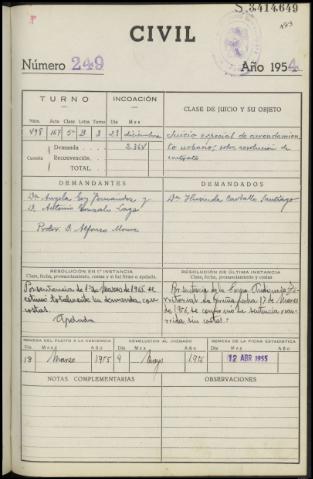 S.3414.649
CIVIL
Número 249
Año 1954
TURNO
INCOACIÓN
CLASE DE JUICIO Y SU OBJETO
Núm. Auto Clase Letra Turno Día Mes
498 167 5ª B 3 23 diciembre
Cuantía
Demanda 2.364
Reconvención
TOTAL
Juicio especial de arrendamien
to urbanos, sobre resolución de
contrato
DEMANDANTES
DEMANDADOS
Dª Angela Fernandez y
D. Antonio Gonzalo
D. Alfonso
Dª Carballo Santiago
RESOLUCIÓN EN 1ª INSTANCIA
Clase, fecha, pronunciamiento, costas y si fué firme o apelada.
RESOLUCIÓN DE ÚLTIMA INSTANCIA
Clase, fecha, pronunciamiento y costas
Por sentencia de 1º Marzo de 1955 se
estimó totalmente la demanda, con
costas.
Apelada
Por sentencia de la Excma. Audiencia Te-
rritorial de fecha 17 de
de 1956, se confirmó la sentencia recu-
rrida sin costas
REMESA DEL PLEITO A LA AUDIENCIA
DEVOLUCIÓN AL JUZGADO
REMESA DE LA FICHA ESTADÍSTICA
Día Mes Año Día Mes Año Día Mes Año
18 Marzo 1955 9 Mayo 1956 12 ABR 1955
NOTAS COMPLEMENTARIAS
OBSERVACIONES